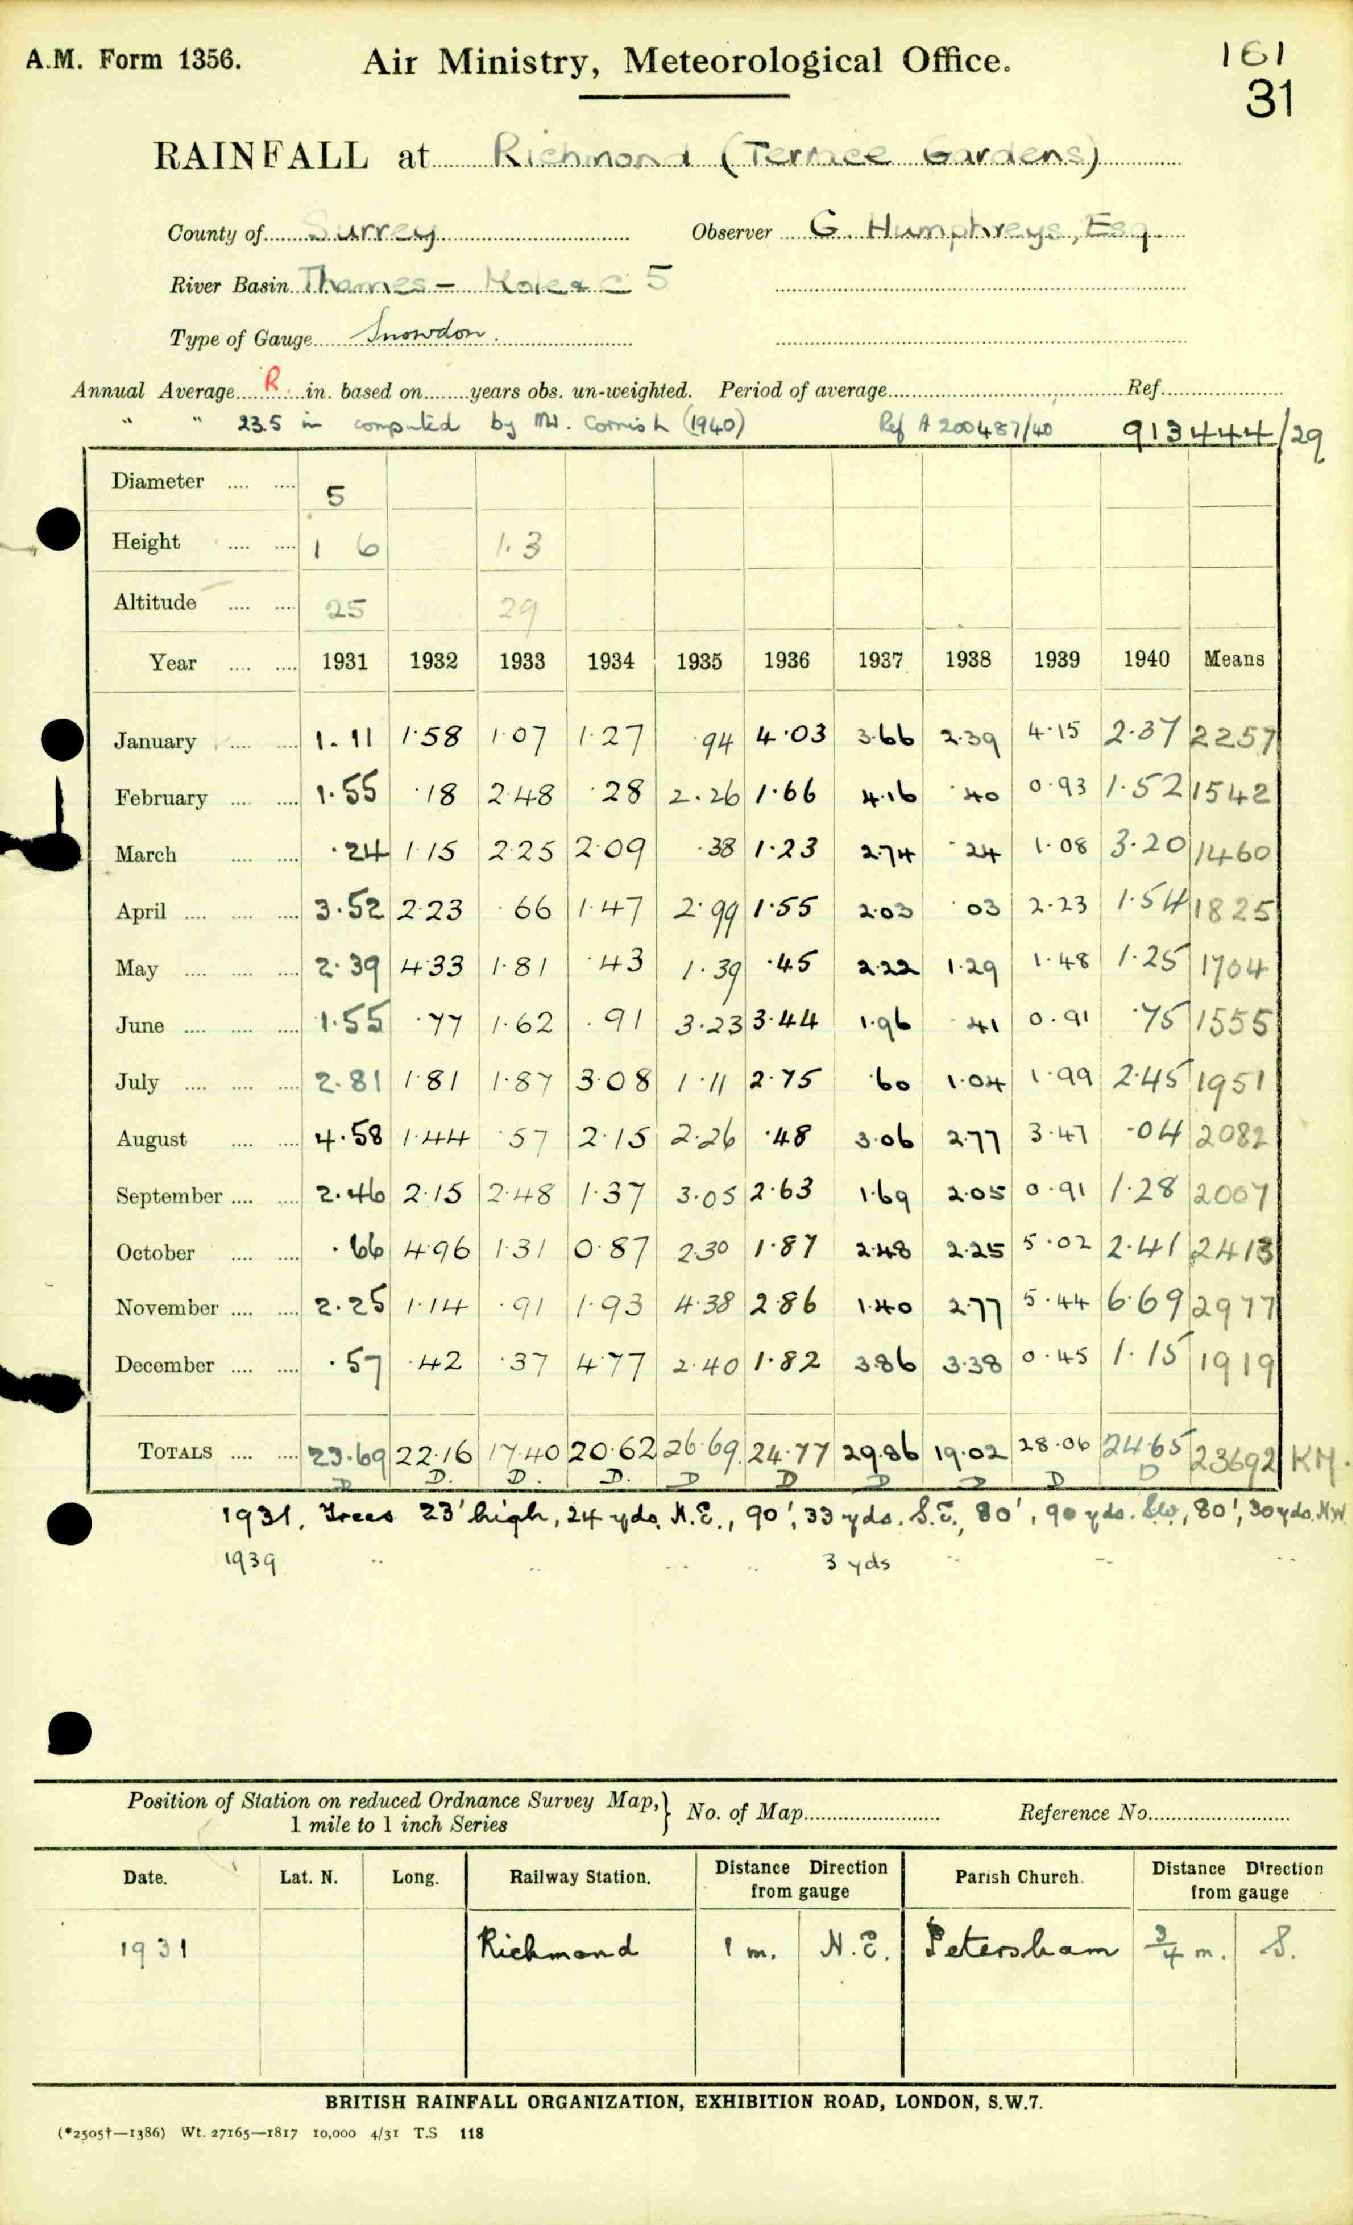 A.M. Form 1356.
Air Ministry, Meteorological Office.
161
31
RAINFALL at Richmond (Terrace Gardens)
County of Surrey Observer G. Humphreys, Esq.
River Basin Thames - Mole &c 5
Type of Gauge Snowdon.
Annual Average R. in. based on years obs. un-weighted. Period of average Ref.
" " 23.5 in computed by Mr. Cornish (1940) Ref A 200487/40 913444/29
Diameter .... .... 5
Height .... .... 1 6 1.3
Altitude .... .... 25 29
Year .... .... 1931 1932 1933 1934 1935 1936 1937 1938 1939 1940 Means
January .... .... 1.11 1.58 1.07 1.27 .94 4.03 3.66 2.39 4.15 2.37 2257
February .... .... 1.55 .18 2.48 .28 2.26 1.66 4.16 .40 0.93 1.52 1542
March .... .... .24 1.15 2.25 2.09 .38 1.23 2.74 .24 1.08 3.20 1460
April .... .... .... 3.52 2.23 .66 1.47 2.99 1.55 2.03 .03 2.23 1.54 1825
May .... .... .... 2.39 4.33 1.81 .43 1.39 .45 2.22 1.29 1.48 1.25 1704
June .... .... .... 1.55 .77 1.62 .91 3.23 3.44 1.96 .41 0.91 .75 1555
July .... .... .... 2.81 1.81 1.87 3.08 1.11 2.75 .60 1.04 1.99 2.45 1951
August .... .... 4.58 1.44 .57 2.15 2.26 .48 3.06 2.77 3.47 .04 2082
September .... .... 2.46 2.15 2.48 1.37 3.05 2.63 1.69 2.05 0.91 1.28 2007
October .... .... .66 4.96 1.31 0.87 2.30 1.87 2.48 2.25 5.02 2.41 2413
November .... .... 2.25 1.14 .91 1.93 4.38 2.86 1.40 2.77 5.44 6.69 2977
December .... .... .57 .42 .37 4.77 2.40 1.82 3.86 3.38 0.45 1.15 1919
TOTALS .... .... 23.69 22.16 17.40 20.62 26.69 24.77 29.86 19.02 28.06 24.65 23692 KM.
D D. D. D. D D D D D D
1931. Trees 23' high, 24 yds. N.E., 90', 33 yds. S.E., 80', 90 yds. SW, 80', 30 yds. NW
1939 " " " " 3 yds " " "
Position of Station on reduced Ordnance Survey Map, } No. of Map Reference No.
1 mile to 1 inch Series
Date. Lat. N. Long. Railway Station. Distance Direction from gauge Parish Church. Distance Direction from gauge
1931 Richmond 1 m. N.E. Petersham 3/4 m. S.
BRITISH RAINFALL ORGANIZATION, EXHIBITION ROAD, LONDON, S.W.7.
(*2505†—1386) Wt. 27165—1817 10,000 4/31 T.S 118